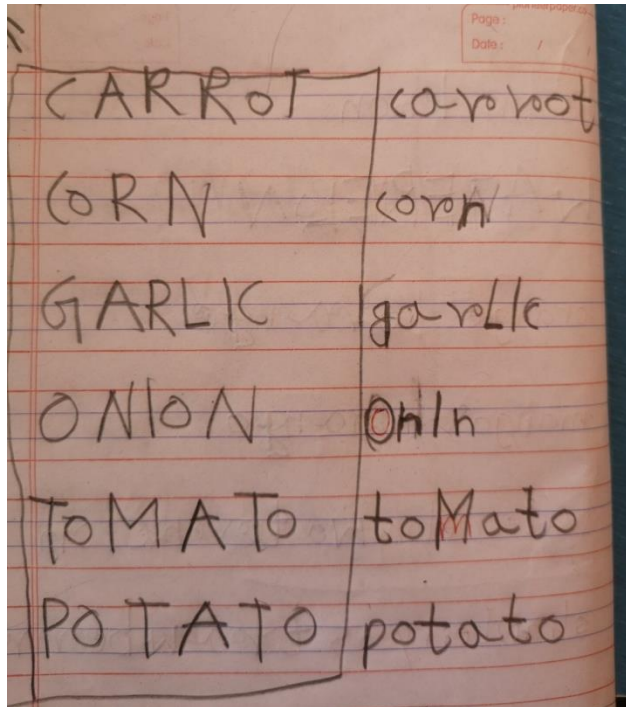 Page :
Date : / /
CARRoT carrot
CoRN corn
GARLIC garLIc
ONIoN OnIn
ToMATo toMato
POTATO potato